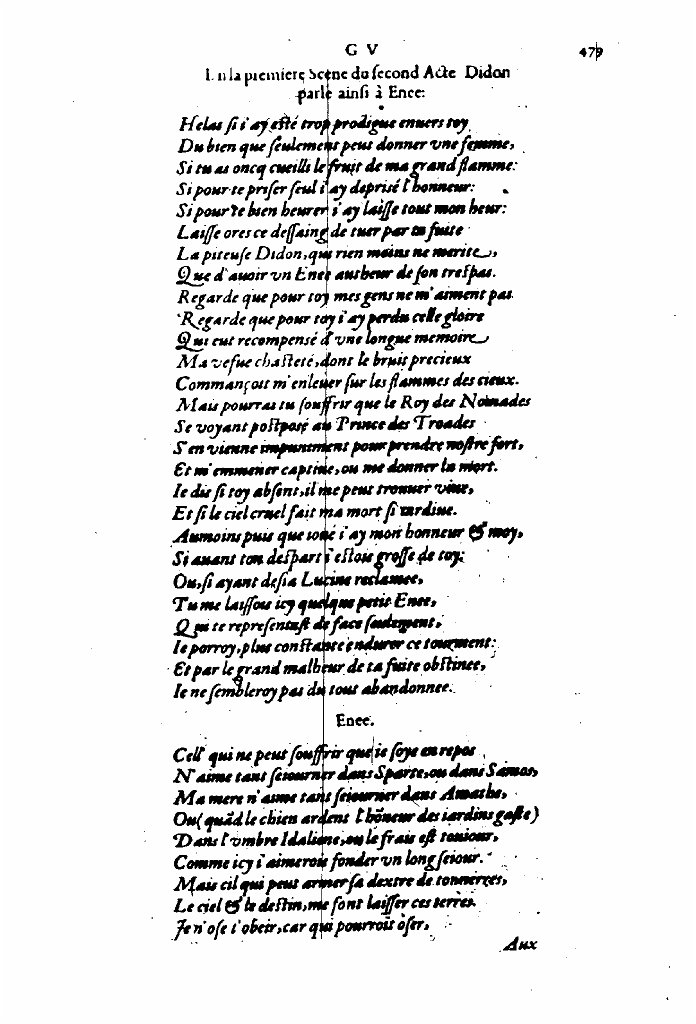 G V 479
En la premiere Scene du second Acte Didon
parle ainsi à Enee:
Helas si i'ay esté trop prodigue enuers toy
Du bien que seulement peut donner vne femme,
Si tu as oncq cueilli le fruit de ma grand flamme:
Si pour te priser seul i'ay deprisé l'honneur:
Si pour te bien heurer i'ay laisse tout mon heur:
Laisse ores ce dessaing de tuer par ta fuite
La piteuse Didon, qui rien moins ne merite,
Que d'auoir vn Enee autheur de son trespas.
Regarde que pour toy mes gens ne m'aiment pas.
Regarde que pour toy i'ay perdu celle gloire
Qui eut recompensé d'vne longue memoire
Ma vefue chasteté, dont le bruit precieux
Commançoit m'enleuer sur les flammes des cieux.
Mais pourras tu souffrir que le Roy des Nomades
Se voyant postposé au Prince des Troades
S'en vienne impunément pour prendre nostre fort,
Et m'emmener captiue, ou me donner la mort.
Ie dis si toy absent, il me peut trouuer viue,
Et si le ciel cruel fait ma mort si tardiue.
Aumoins puis que i'ay mon honneur & moy,
Si auant ton despart i'estois grosse de toy:
Ou, si ayant desia Lucine reclamee,
Tu me laissois icy quelque petit Enee,
Qui te representast de face seulement,
Ie porroy, plus constante endurer ce tourment:
Et par le grand malheur de ta fuite obstinee,
Ie ne sembleroy pas du tout abandonnee.
Enee.
Cell' qui ne peut souffrir que ie soye en repos
N'aime tant seiourner dans Sparte, ou dans Samos,
Ma mere n'aime tant seiourner dans Amathe,
Ou (quãd le chien ardent l'hõneur des iardins gaste)
Dans l'vmbre Idaliene, ou le frais est tousiour,
Comme icy i'aimerois fonder vn long seiour.
Mais cil qui peut armer sa dextre de tonnerres,
Le ciel & le destin, me font laisser ces terres.
Je n'ose l'obeir, car qui pourroit oser,
Aux